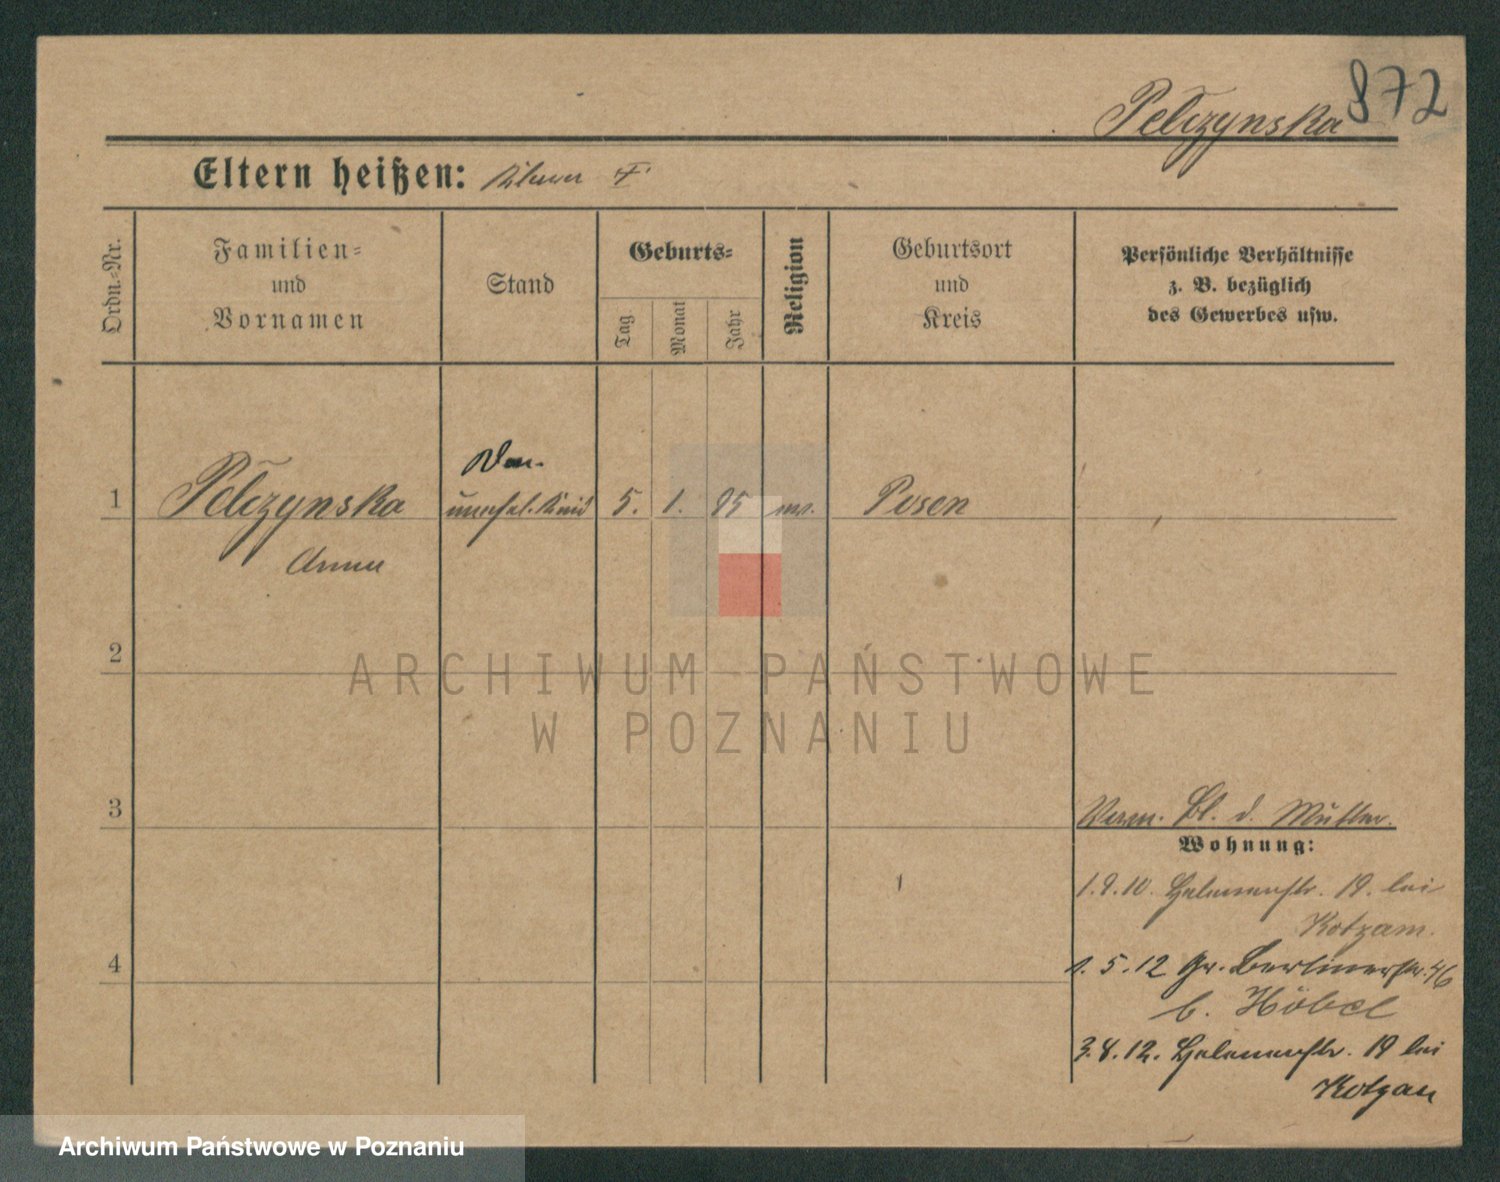 872
Pelczynska
Eltern heißen:
Ordn.-Nr.
Familien-
und
Vornamen
Stand
Geburts-
Tag
Monat
Jahr
Religion
Geburtsort
und
Kreis
Persönliche Verhältnisse
z. B. bezüglich
des Gewerbes usw.
1 Pelczynska unehel. Kind 5. 1. 95 Posen
Anna
2
ARCHIWUM PAŃSTWOWE
W POZNANIU
3
Verm. Bl. d. Mutter.
Wohnung:
1.9.10. Helenenstr. 19. bei
Kotzam.
4
1.5.12 Gr. Berlinerstr. 46
b. Höbel
3.8.12. Helenenstr. 19 bei
Kotzan
Archiwum Państwowe w Poznaniu